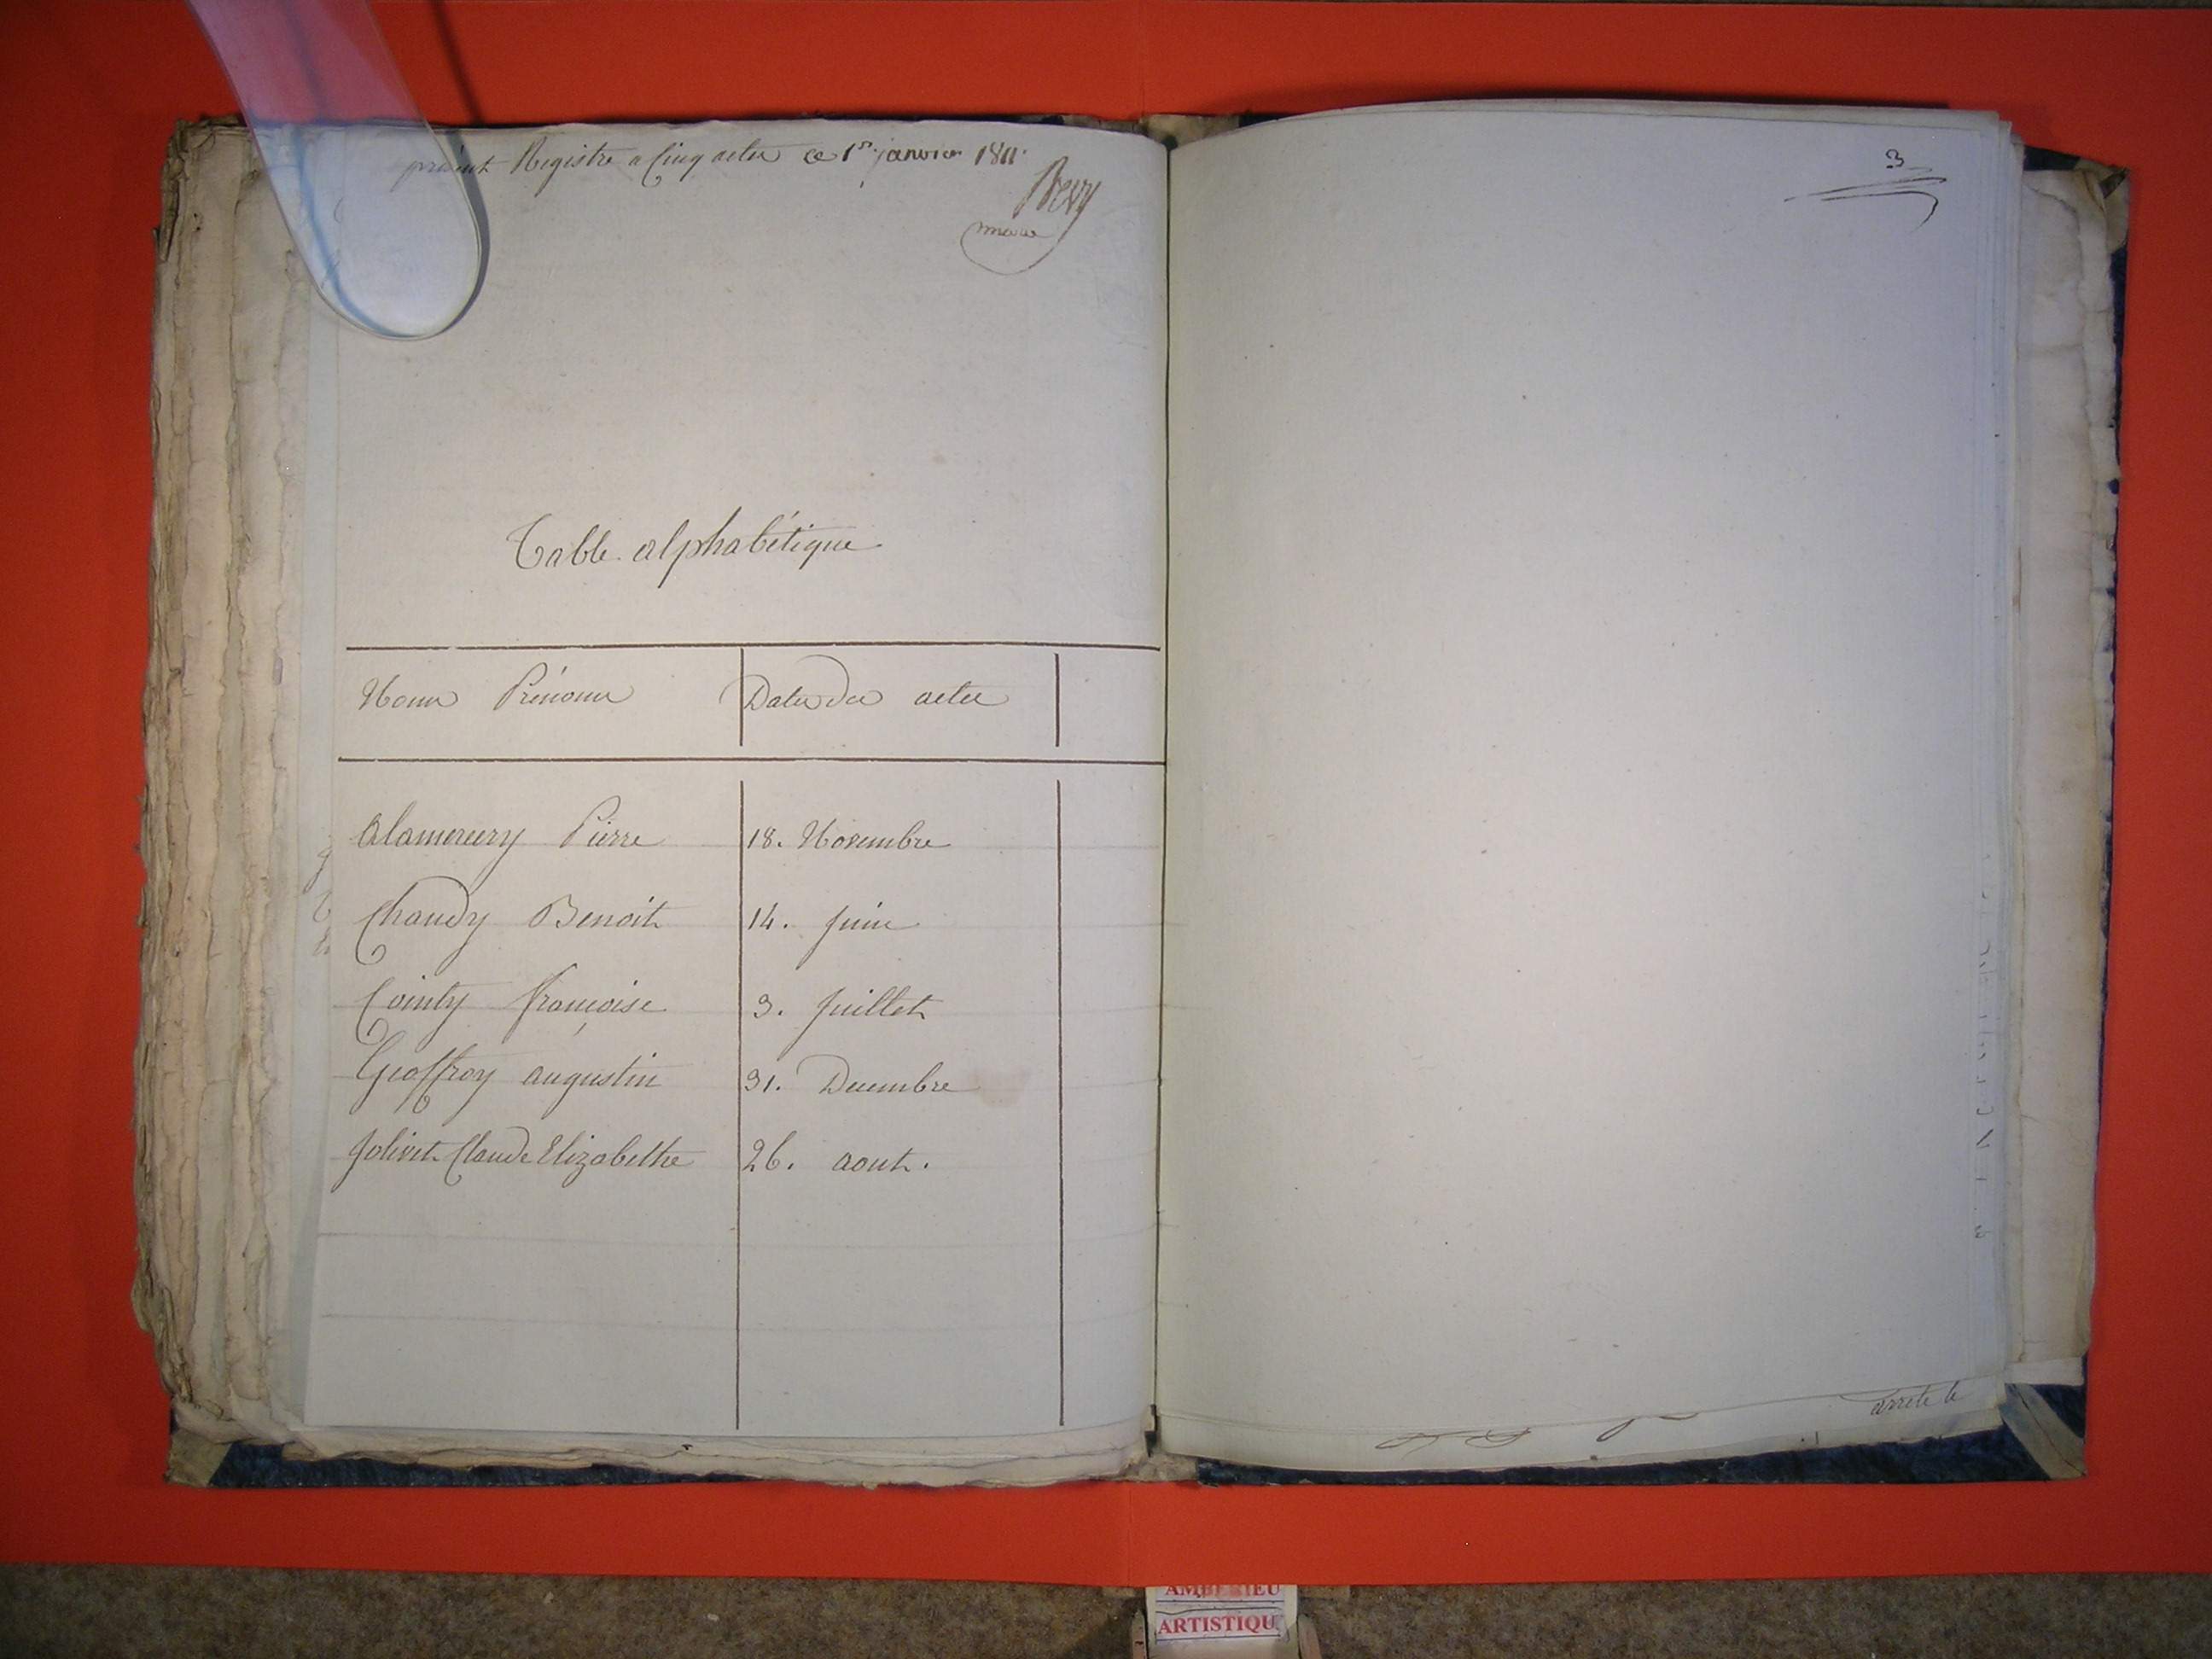 présent Registre a Cinq actes ce 1er janvier 1811.
maire
Table alphabétique
Noms Prénoms Dates des actes
Alamercery Pierre 18. Novembre
Chaudy Benoit 14. juin
Cointy françoise 3. juillet
Geoffroy augustin 31. Decembre
Jolivet Claude Elizabethe 26. aout.
3
arrêté le
AMBERIEU
ARTISTIQU